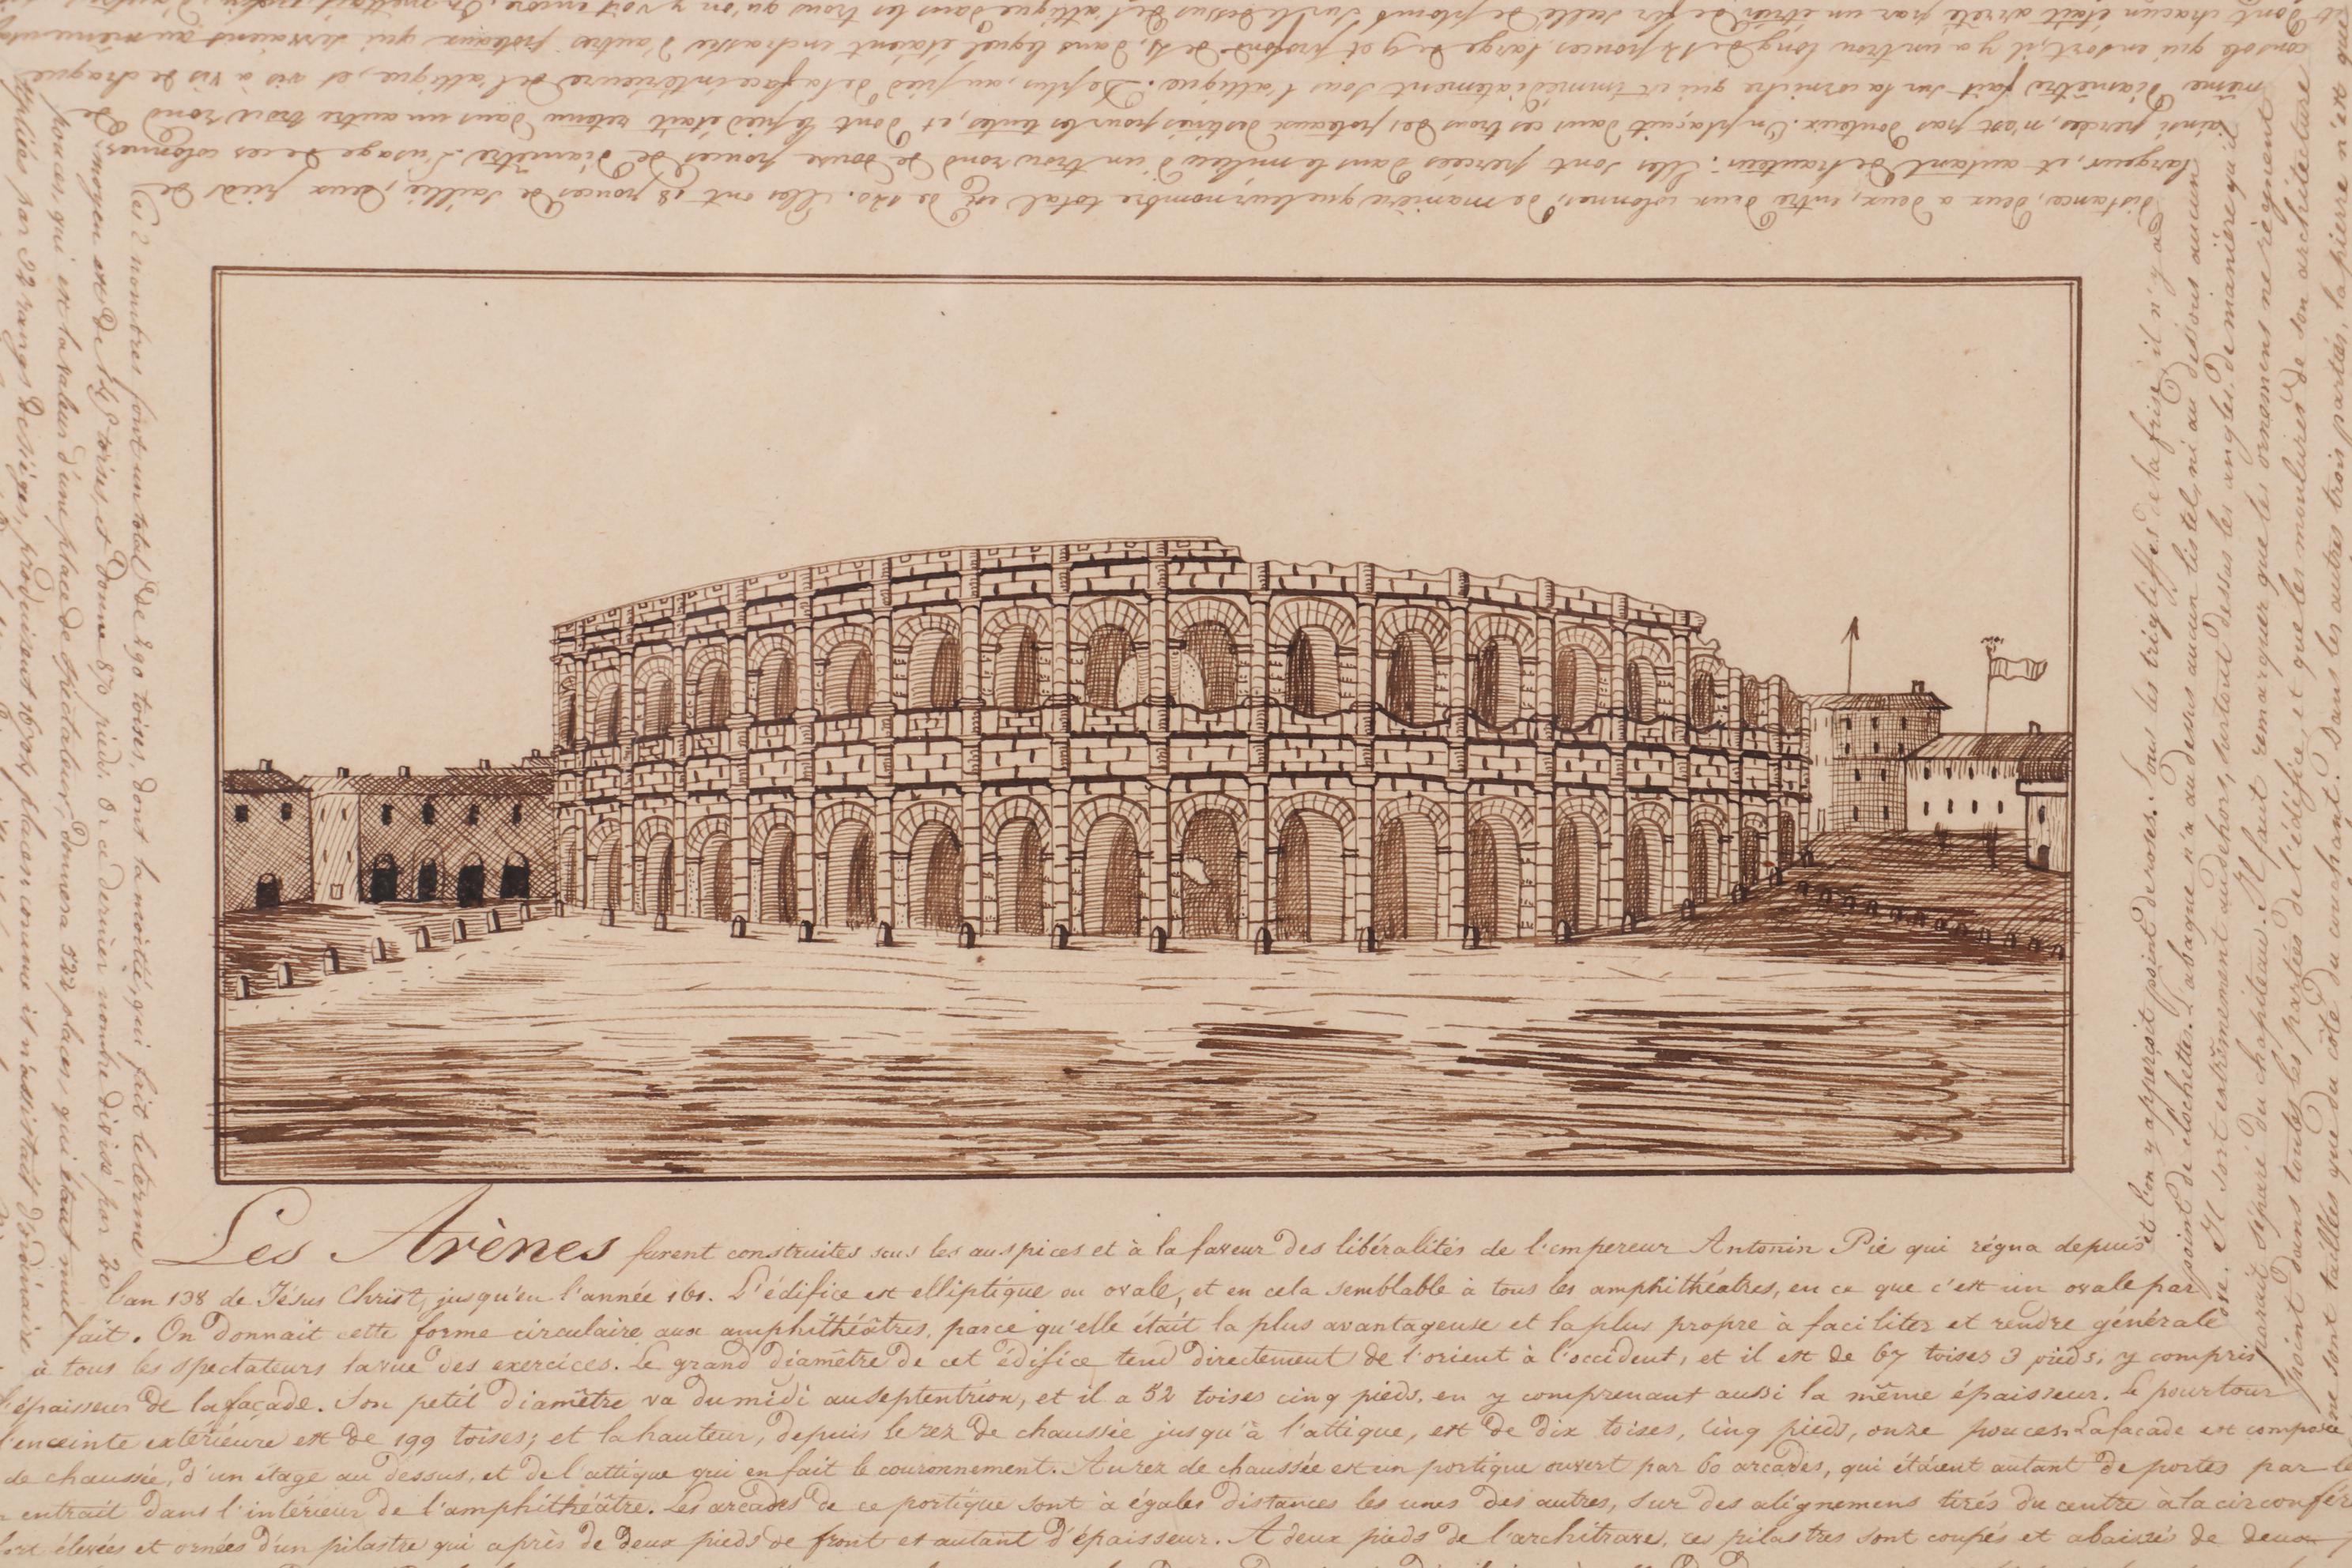 Les Arènes furent construites sous les auspices et à la faveur des libéralités de l'empereur Antonin Pie qui régna depuis
l'an 138 de Jésus Christ, jusqu'en l'année 161. L'édifice est elliptique ou ovale, et en cela semblable à tous les amphithéatres, en ce que c'est un ovale par
fait. On donnait cette forme circulaire aux amphithéâtres, parce qu'elle était la plus avantageuse et la plus propre à faciliter et rendre générale
à tous les spectateurs la vue des exercices. Le grand diamètre de cet édifice tend directement de l'orient à l'occident, et il est de 67 toises 3 pieds, y compris
l'épaisseur de la façade. Son petit diamètre va du midi au septentrion, et il a 52 toises cinq pieds, en y comprenant aussi la même épaisseur. Le pourtour
l'enceinte extérieure est de 199 toises; et la hauteur, depuis le rez de chaussée jusqu'à l'attique, est de dix toises, cinq pieds, onze pouces. La façade est composée
de chaussée, d'un étage au dessus, et de l'attique qui en fait le couronnement. Au rez de chaussée est un portique ouvert par 60 arcades, qui étaient autant de portes par
entrait dans l'intérieur de l'amphithéâtre. Les arcades de ce portique sont à égales distances les unes des autres, sur des alignemens tirés du centre à la circonfér
élevées et ornées d'un pilastre qui après de deux pieds de front et autant d'épaisseur. A deux pieds de l'architrave, ces pilastres sont coupés et abaissés de deux
et l'on y apperçoit point de roses. Sous les trigliffes de la frise, il n'y a
point de clochettes. L'abaque n'a au dessus aucun listel, ni au dessous aucun
ove. Il sort extrêmement au dehors, surtout dessus les angles, de manière qu'il
parait séparé du chapiteau. Il faut remarquer que les ornemens ne régnent
point dans toutes les parties de l'édifice, et que les moulures de son architecture
ne sont taillées que du côté du couchant. Dans les autres trois parties, la pierre n'est que
distance, deux à deux, entre deux colonnes; de manière que leur nombre total est de 120. Elles ont 18 pouces de saillie, deux pieds de
largeur, et autant de hauteur. Elles sont percées dans le milieu d'un trou rond de douze pouces de diamètre. L'usage de ces colonnes
ainsi percées, n'est pas douteux. On plaçait dans ces trous des poteaux destinés pour les tentes, et dont le pied était retenu dans un autre trou rond de
même diamètre fait sur la corniche qui est immédiatement sous l'attique. De plus, au pied de la face intérieure de l'attique, et vis à vis de chaque
console qui en sort, il y a un trou long de 14 pouces, large de 9 et profond de 4, dans lequel étaient enchassés d'autres poteaux qui servaient au même usage
dont chacun était arrêté par un étrier de fer scellé de plomb sur le dessus de l'attique dans les trous qu'on y voit encore. On mettait
Ces 2 nombres font un total de 290 toises, dont la moitié, qui fait le terme
moyen est de 145 toises, et donne 870 pieds. Or ce dernier nombre divisé par 20
pouces, qui est la valeur d'une place de spectateur, donnera 522 places, qui étant mul
tipliés par 32 rangs de sièges, produisent 16704 places; comme il n'assistait d'ordinaire